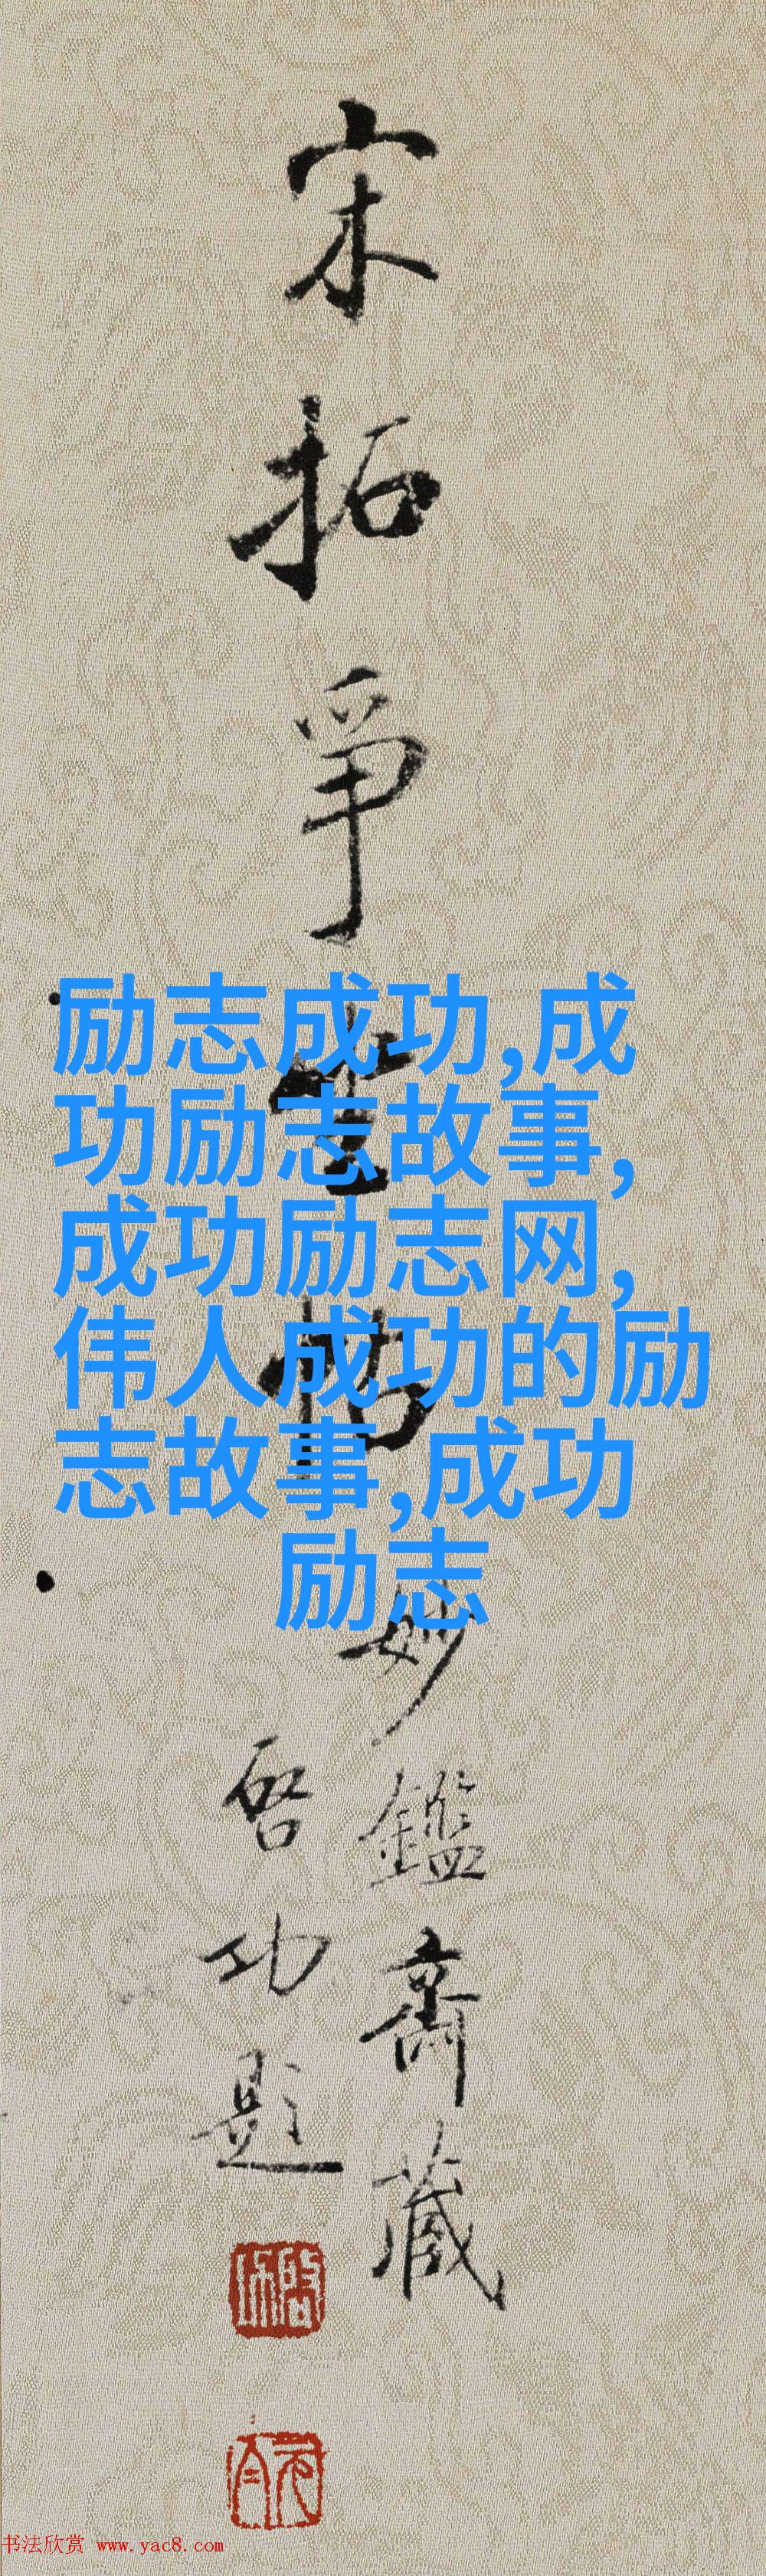 宋拓爭
妙鑑齋藏
启功題
励志成功,成
功励志故事,
成功励志网,
伟人成功的励
志故事,成功
励志
书法欣赏 www.yac8.com